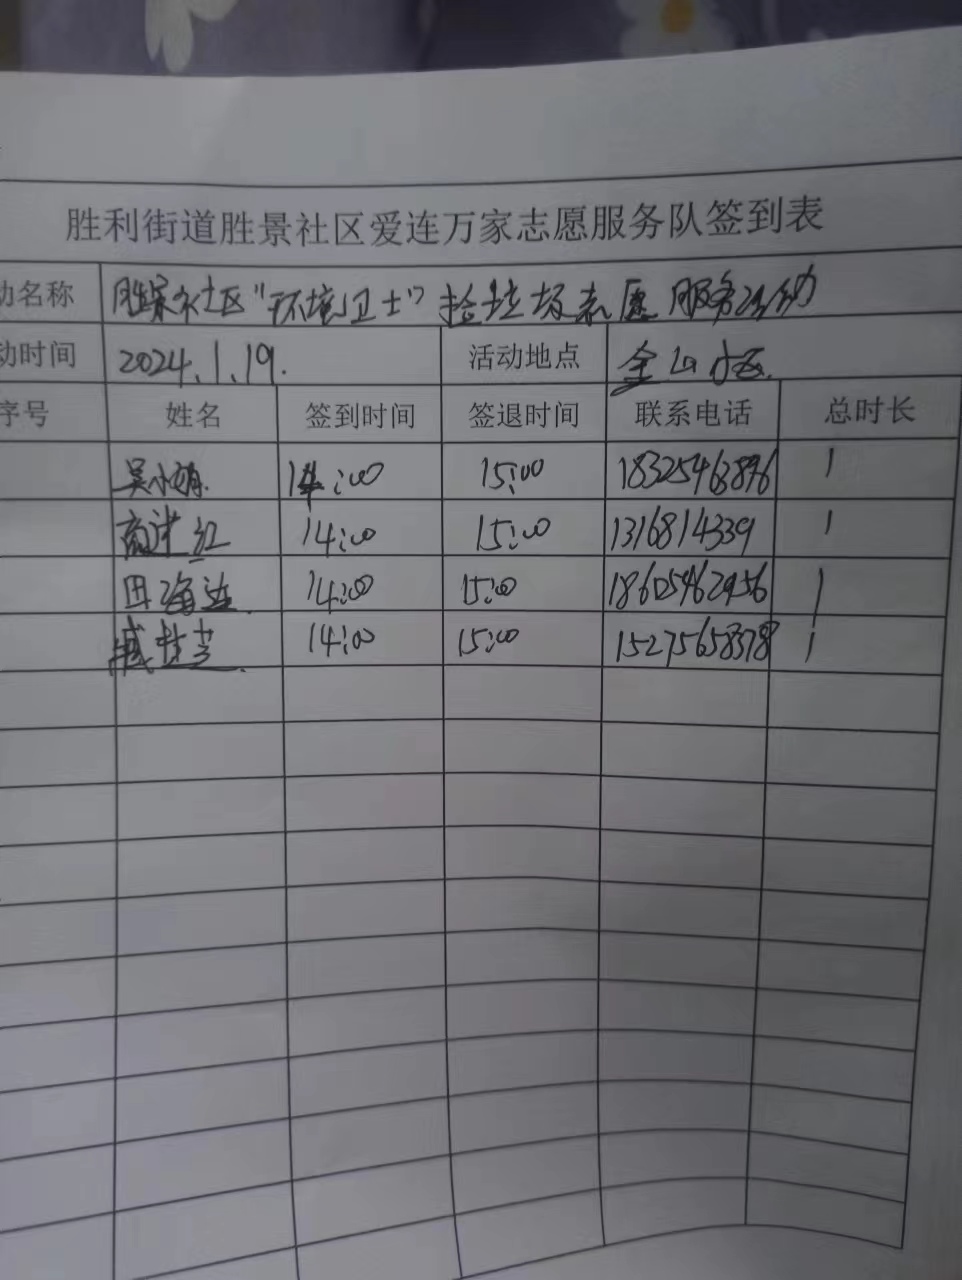 胜利街道胜景社区爱连万家志愿服务队签到表
动名称 胜景社区“环境卫士”捡垃圾志愿服务活动
动时间 2024.1.19. 活动地点 金山小区
序号 姓名 签到时间 签退时间 联系电话 总时长
吴小娟 14:00 15:00 18325463896 1
商建红 14:00 15:00 1316814339 1
田海连 14:00 15:00 18605462456 1
臧桂芝 14:00 15:00 15275658378 1